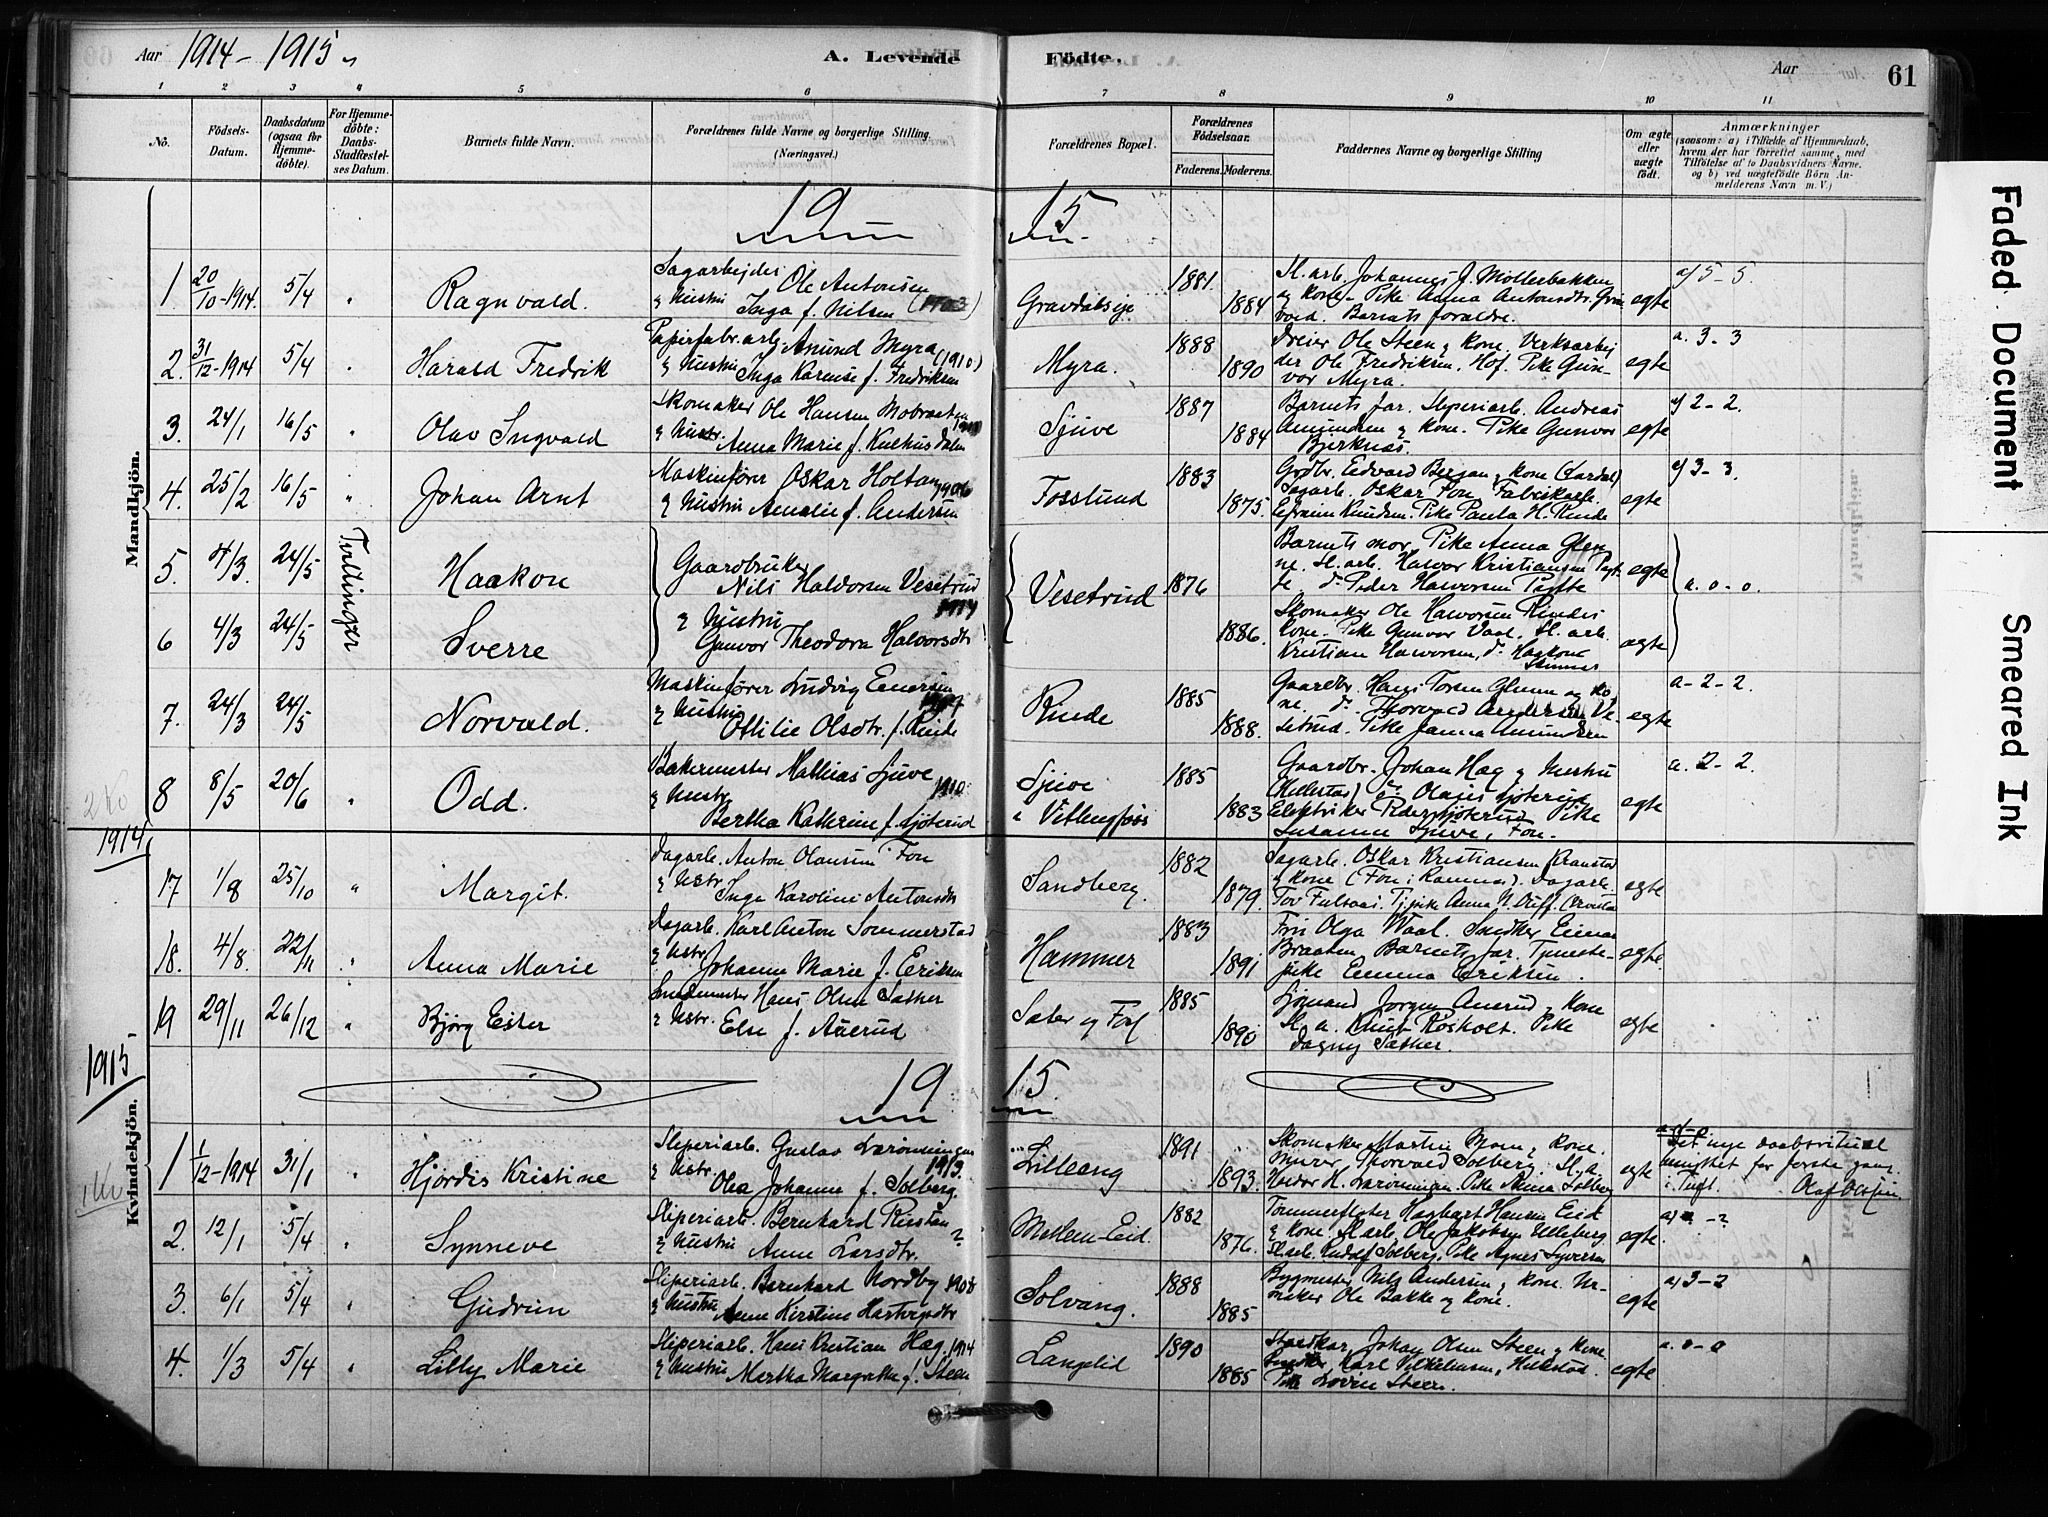 Aar 1914 - 1915
A. Levende Födte.
Aar
61
1 2 3 4 5 6 7 8 9 10 11
No.
Födsels-Datum.
Daabsdatum (ogsaa för Hjemme-döbte).
For Hjemme-döbte: Daabs-Stadfæstel-ses Datum.
Barnets fulde Navn.
Forældrenes fulde Navne og borgerlige Stilling. (Næringsvei.)
Forældrenes Bopæl.
Forældrenes Födselsaar.
Faderens. Moderens.
Faddernes Navne og borgerlige Stilling
Om ægte eller uægte födt.
Anmærkninger
(saasom: a) i Tilfælde af Hjemmedaab, hvem der har forrettet samme, med Tilföielse af to Daabsvidners Navne. og b) ved uægtefödte Börn An-melderens Navn m. V.)
Mandkjön.
19 15
1 20/10-1914. 5/4 " Ragnvald. Sagarbejder Ole Antonsen
& Hustru Inga f. Nilsen (1903) Gravdalseje 1881 1884
Sl. arb. Johannes J. Mollerbakken
og Kone. Pike Anna Antonsdtr. Grav
vold. Barnets forældre. egte a) 5-5
2. 31/12-1914 5/4 " Harald Fredrik Papirfabr. arb. Amund Myra (1910)
& Hustru Inga Karense f. Fredriksen Myra. 1888 1890
Dreier Ole Steen & Kone. Verksarbej
der Ole Fredriksen, Hof. Pike Gun-
vor Myra. egte a. 3-3
3. 24/1 16/5 " Olav Ingvald Skomaker Ole Hansen Mobraaten
& Hustr. Anna Marie f. Kulhusdalen Sjuve 1887 1884
Barnets far. Sliperiarb. Andreas
Amundsen & Kone. Pike Gunvor
Bjerknæs. egte a) 2-2.
4. 25/2 16/5 " Johan Arnt Maskinfører Oskar Holtan 1906
& Hustru Amalie f. Andersen Fosslund 1883 1875.
Grdbr. Edvard Bergan & Kone (Lardal)
Sagarb. Oskar Fon. Fabrikarb.
Efraim Knudsen. Pike Paula H. Rinde egte a) 3-3.
Tvillinger
5. 4/3. 24/5 Haakon Gaardbruker
Nils Haldorsen Vesetrud 1914 Vesetrud 1876
Barnets mor. Pike Anna Glen
ne. Sl. arb. Halvor Kristiansen
do. Peder Halvorsen egte a. 0-0.
6 4/3 24/5 Sverre & Hustru
Gunvor Theodora Halvorsdtr. 1886.
Skomaker Ole Halvorsen Rindes
Kone. Pike Gunvor Vaal. Sl. arb.
Kristian Halvorsen, do. Haakon egte
7. 24/3 24/5 Norvald. Maskinfører Ludvig Enersen
& Hustru Ottilie Olsdtr. f. Rinde Rinde 1885 1888.
Gaardbr. Hans Torsen Glenne og Ko
ne. do. Thorvald Andersen Ve-
setrud. Pike Janna Amundsen egte a-2-2.
8 8/5 20/6 " Odd. Bakermester Mathias Sjuve 1910
& Hustr. Bertha Kathrine f. Sjøterud Sjuve
i Vittingfoss 1885 1883
Gaardbr. Johan Hag & Hustru
(Hillestad) do. Olaus Sjøterud
Elektriker Peder Sjøterud Pike
Susanne Sjuve, Fon. egte a. 2-2.
1914
Kvindekjön.
17 1/8 25/10 " Margit. Dagarb. Anton Olausen Fon
& Hstr. Inga Karoline Antonsdtr Sandberg. 1882 1879.
Sagarb. Oskar Kristiansen Kranstad
& Kone (Fon i Ramnes). Dagarb.
Tov Fulsaas. Tj.pike Anna N. egte
18. 4/8. 22/11 " Anna Marie Dagarb. Karl Anton Sommerstad
& Hstr. Johanne Marie f. Eriksen Hammer 1883 1891
Fru Olga Waal. Snedker Einar
Braaten. Barnets far. Tjeneste-
pike Emma Eriksen. egte.
19 29/11 26/12 " Bjørg Ester Smedmester Hans Olsen Sæther
& Hstr. Else f. Auerud Sæter og Fosl 1885 1890
Sjømand Jørgen Auerud & Kone
Sl. a. Knut Rosholt. Pike
Dagny Sæther. egte
1915
19 15
1 1/12-1914 31/1 " Hjørdis Kristine Sliperiarb. Gustav Larønningen 1913.
& Hstr. Olea Johanne f. Solberg. Lilleeng 1891 1893.
Skomaker Martin Moen & Kone.
Murer Thorvald Solberg. Sl. a.
Halvor H. Larønningen. Pike Anna Solberg egte
Det nye daabsritual
benyttet for første gang
i Tuft. Olaf Olafsen
2. 12/1 5/4 " Synneve Sliperiarb. Bernhard Kristian ?
& Hustru Anne Larsdtr. Mellem-Eid. 1882 1876.
Tømmerfløter Hagbart Hansen Eid
& Kone. Sl. arb. Ole Jakobsen Ulleberg
Sl. arb. Rudolf Solberg. Pike Agnes Syversen egte.
3. 6/1 5/4 " Gudrun Sliperiarb. Bernhard Nordby 1908
& Hustru Anne Kirstine Hartvigsdtr Solvang. 1888 1885
Bygmester Nils Andersen & Kone. Ur-
maker Ole Bakke og Kone. egte a) 3-2
4. 1/3 5/4 " Lilly Marie Sliperiarb. Hans Kristian Hag. 1914
& Hustru Martha Margrethe f. Steen Langelid 1890 1885
Staldkar Johan Olsen Steen & Kone.
Karl Vilhelmsen, Hillestad
Pike Lovise Steen. egte a. 0-0
Faded Document
Smeared Ink